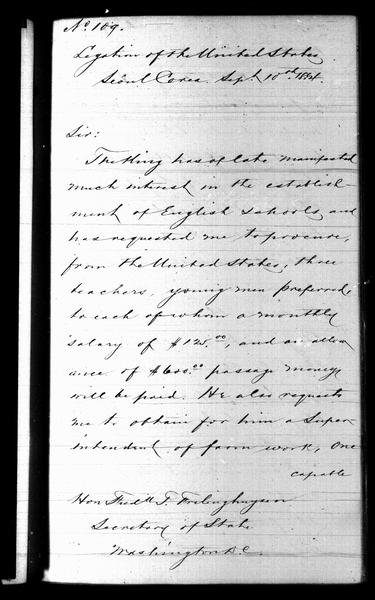 No. 109.
Legation of the United States
Séoul Corea. Sept 10th 1884.
Sir:
The King has of late manifested
much interest in the establish-
ment of English schools, and
has requested me to procure,
from the United States, three
teachers, young men preferred,
to each of whom a monthly
salary of $125.00, and an allow
ance of $600.00 passage money
will be paid. He also requests
me to obtain for him a Super-
intendent of farm work, one
capable
Hon Fredk T. Frelinghuysen
Secretary of State
Washington D.C.